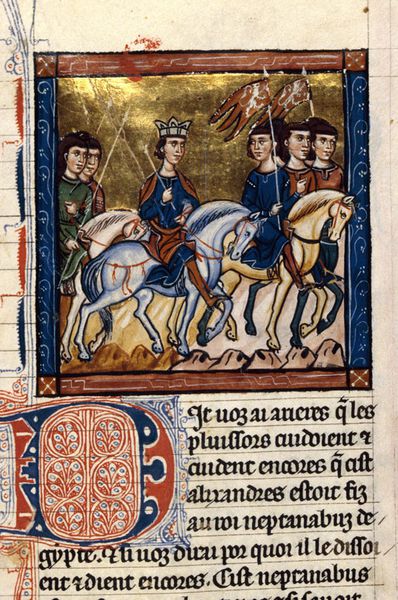 Dit uoz ai arieres q̃ les
pluissors cuidoient ⁊
cuident encores q̃ cist
alixandres estoit fiz
au roi neptanabuz de
gypte. ⁊ si uoz dirai por quoi il le dissoi
ent ⁊ dient encores. Cist neptanabus